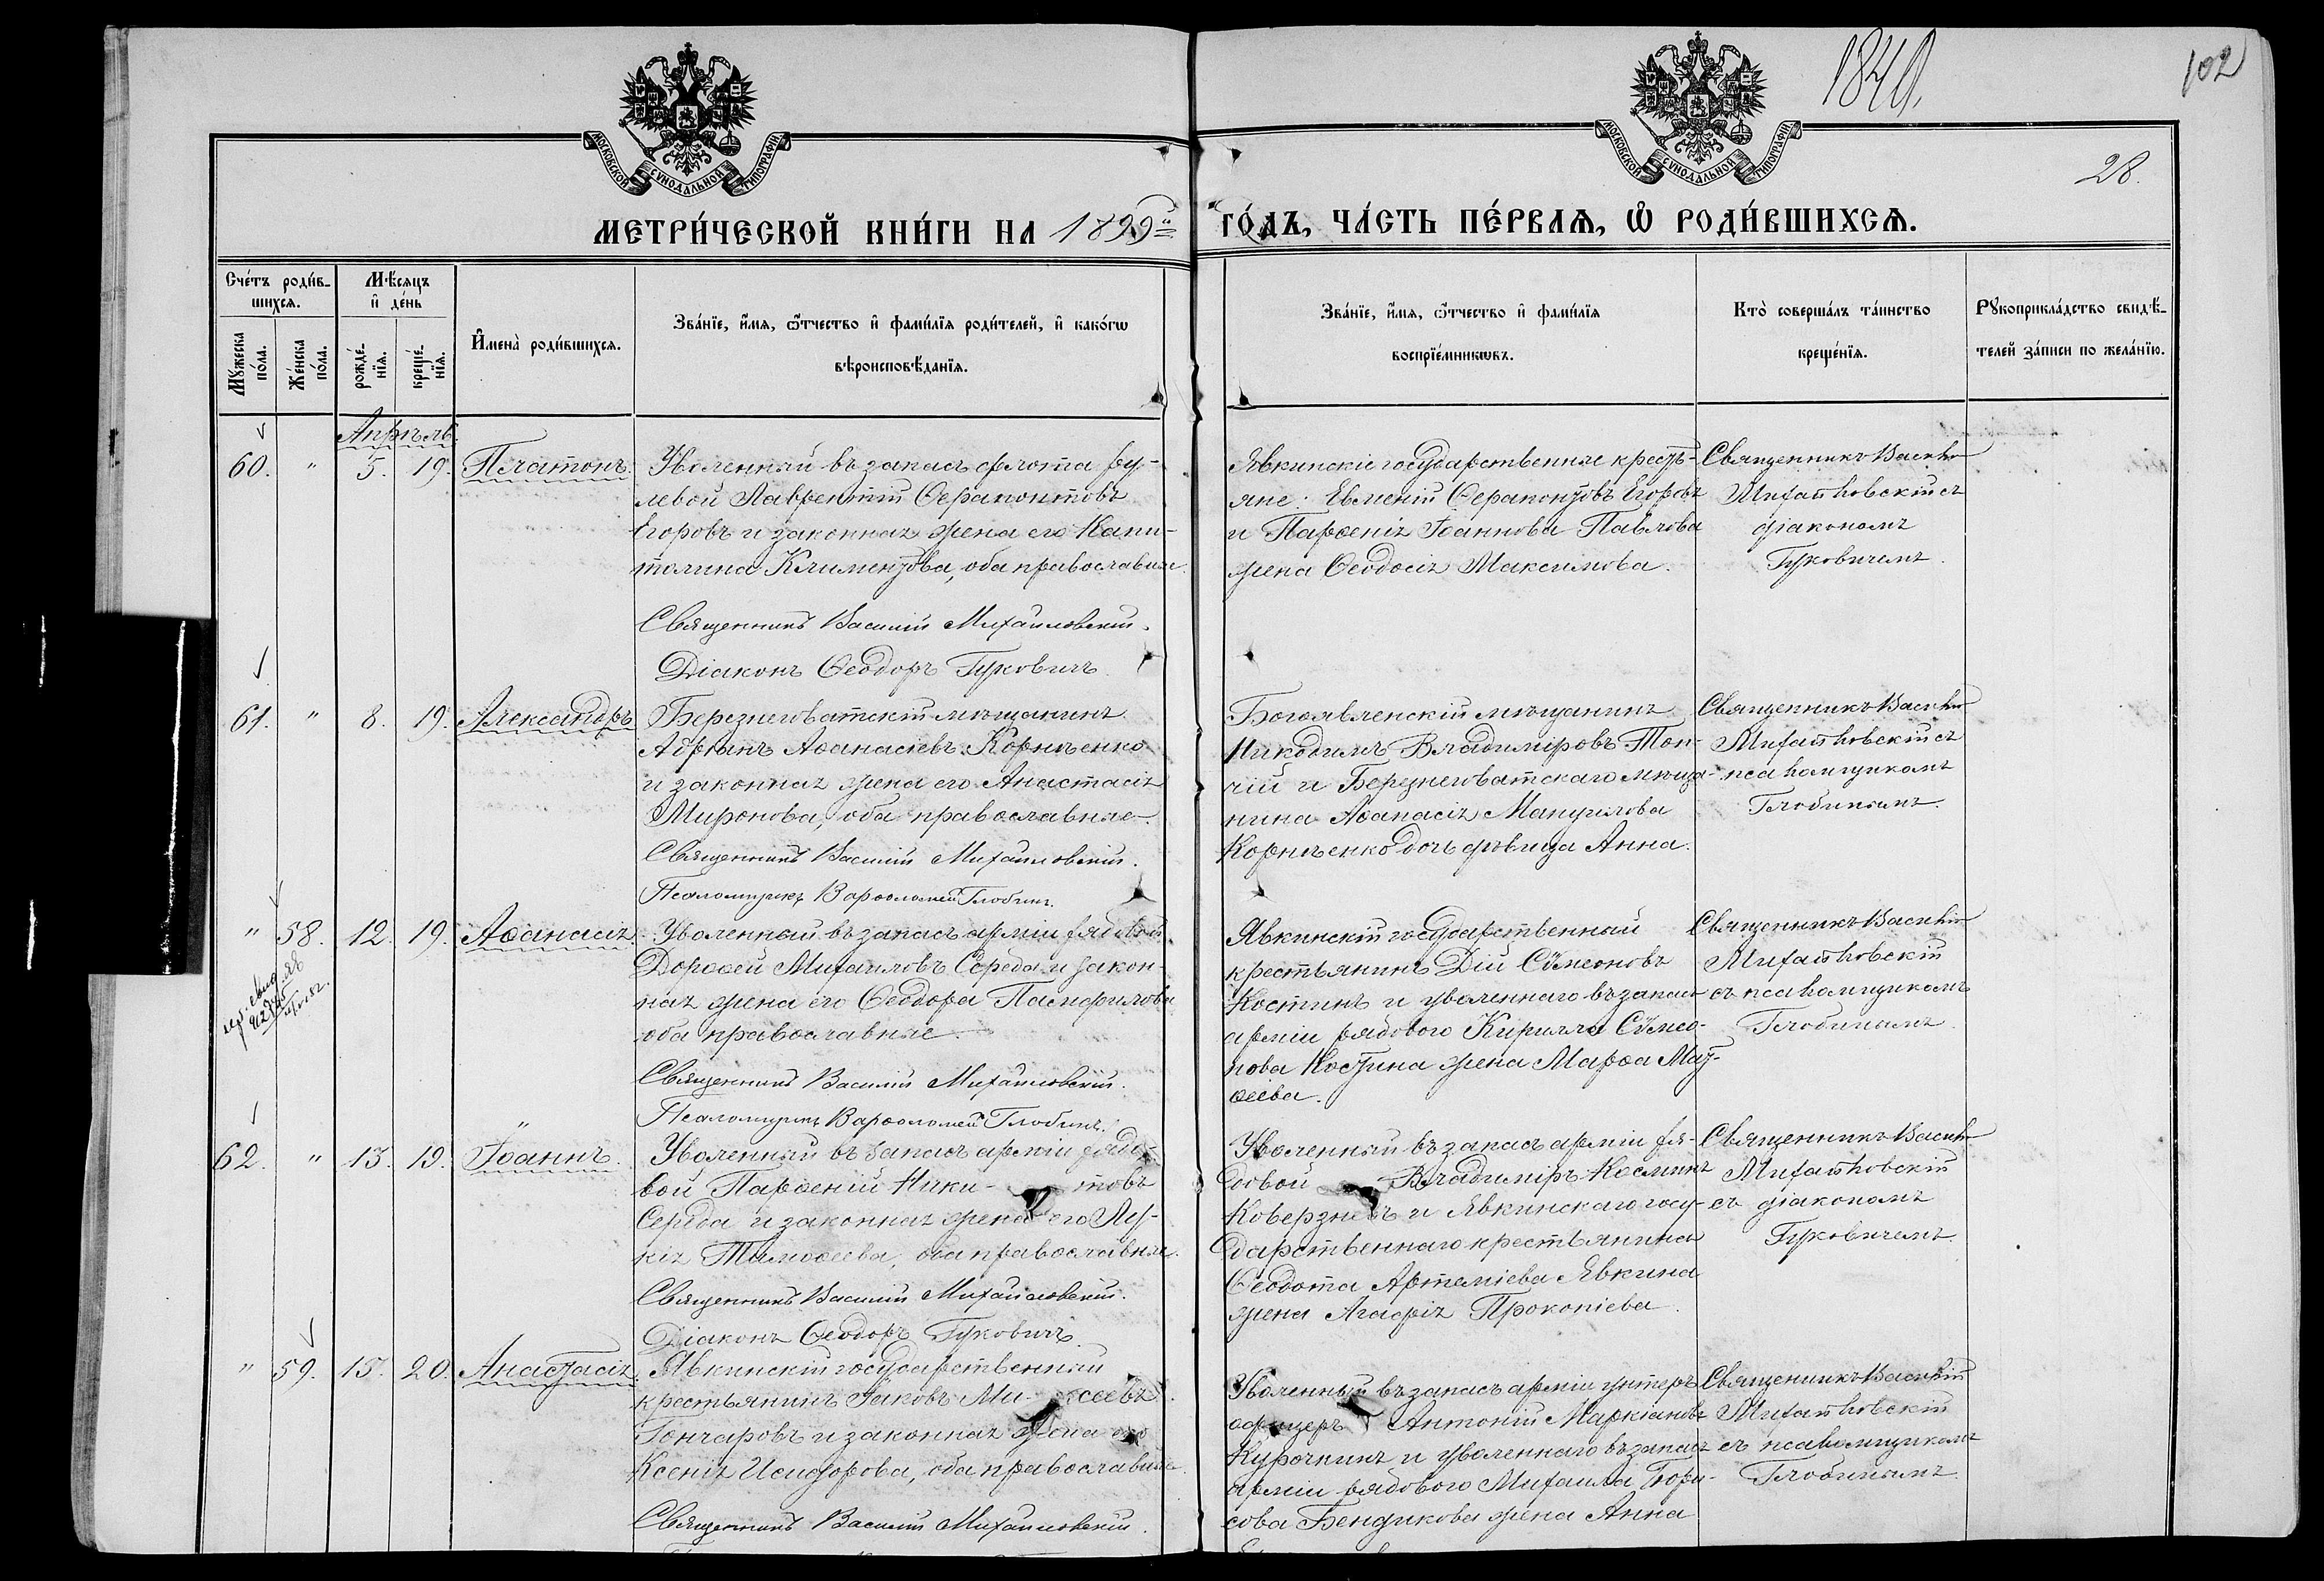 1849.
102
28.
МОСКОВСКОЙ СѴНОДАЛЬНОЙ ТИПОГРАФІИ
МОСКОВСКОЙ СѴНОДАЛЬНОЙ ТИПОГРАФІИ
МЕТРИ́ЧЕСКОЙ КНИ́ГИ НА 1899й ГО́ДЪ, ЧА́СТЬ ПЕ́РВАѦ, Ѡ҆ РОДИ́ВШИХСѦ.
Сче́тъ роди́в-
шихсѧ.
Мꙋ́жеска по́ла.
Же́нска по́ла.
Мѣ́сѧцъ
и҆ де́нь
рожде́-
нїѧ.
креще́-
нїѧ.
И҆мена̀ роди́вшихсѧ.
Зва́нїе, и҆́мѧ, ѻ҆́тчество и҆ фами́лїѧ роди́телей, и҆ како́гѡ
вѣроисповѣ́данїѧ.
Зва́нїе, и҆́мѧ, ѻ҆́тчество и҆ фами́лїѧ
воспрїе́мникѡвъ.
Кто̀ соверша́лъ та́инство
креще́нїѧ.
Рꙋкоприкла́дство свидѣ́-
телей за́писи по жела́нїю.
Апрѣль.
60. " 5. 19. Платонъ.
Уволенный въ запасъ флота ру-
левой Лаврентій Ѳерапонтовъ
Егоровъ и законная жена его Капи-
толина Климентова, оба православные.
Священникъ Василій Михайловскій.
Діаконъ Ѳеодоръ Гуковичъ.
Явкинскіе государственные кресть-
яне: Евменій Ѳерапонтовъ Егоровъ
и Парѳенія Іоаннова Павлова
жена Ѳеодосія Максимова.
Священникъ Василій
Михайловскій съ
діакономъ
Гуковичемъ.
61. " 8. 19. Александръ
Березнеговатскій мѣщанинъ
Адріанъ Аѳанасіевъ Корнѣенко
и законная жена его Анастасія
Миронова, оба православные.
Священникъ Василій Михайловскій.
Псаломщикъ Варѳоломей Глобинъ.
Богоявленскій мѣщанинъ
Никодимъ Владиміровъ Топ-
чій и Березнеговатскаго мѣща-
нина Аѳанасія Мануилова
Корнѣенко дочь дѣвица Анна.
Священникъ Василій
Михайловскій съ
псаломщикомъ
Глобинымъ.
" 58. 12. 19. Аѳанасія.
Уволенный въ запасъ арміи рядовой
Дороѳей Михаиловъ Середа и закон-
ная жена его Ѳеодора Памфилова
оба православные.
Священникъ Василій Михайловскій.
Псаломщикъ Варѳоломей Глобинъ.
Явкинскій государственный
крестьянинъ Дій Сѵмеоновъ
Костинъ и уволеннаго въ запасъ
арміи рядового Кирилла Сѵмео-
нова Костина жена Марѳа Мат-
ѳеева.
Священникъ Василій
Михайловскій
съ псаломщикомъ
Глобинымъ
62. " 13. 19. Іоаннъ.
Уволенный въ запасъ арміи рядо-
вой Парѳеній Ники- товъ
Середа и законная жена его Лу-
кія Тимоѳеева, оба православные.
Священникъ Василій Михайловскій.
Діаконъ Ѳеодоръ Гуковичъ.
Уволенный въ запасъ арміи ря-
довой Владиміръ Косминъ
Коверзневъ и Явкинскаго госу-
дарственнаго крестьянина
Ѳеодота Артеміева Явкина
жена Агафія Прокопіева.
Священникъ Василій
Михайловскій
съ діакономъ
Гуковичемъ.
" 59. 15. 20. Анастасія.
Явкинскій государственный
крестьянинъ Іаковъ
Гончаровъ и законная жена его
Ксенія Исидорова, оба православные.
Священникъ Василій Михайловскій.
Уволенный въ запасъ арміи унтеръ
офицеръ Антоній Маркіановъ
Курочкинъ и уволеннаго въ запасъ
арміи рядового Михаила Бори-
сова Бендикова жена Анна
Священникъ Василій
Михайловскій
съ псаломщикомъ
Глобинымъ.